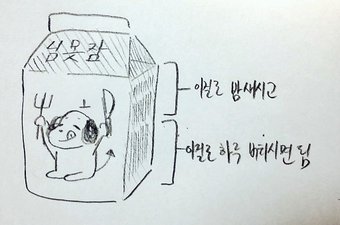 심못잠
이걸로 밤새시고
이걸로 하루 버티시면 됨